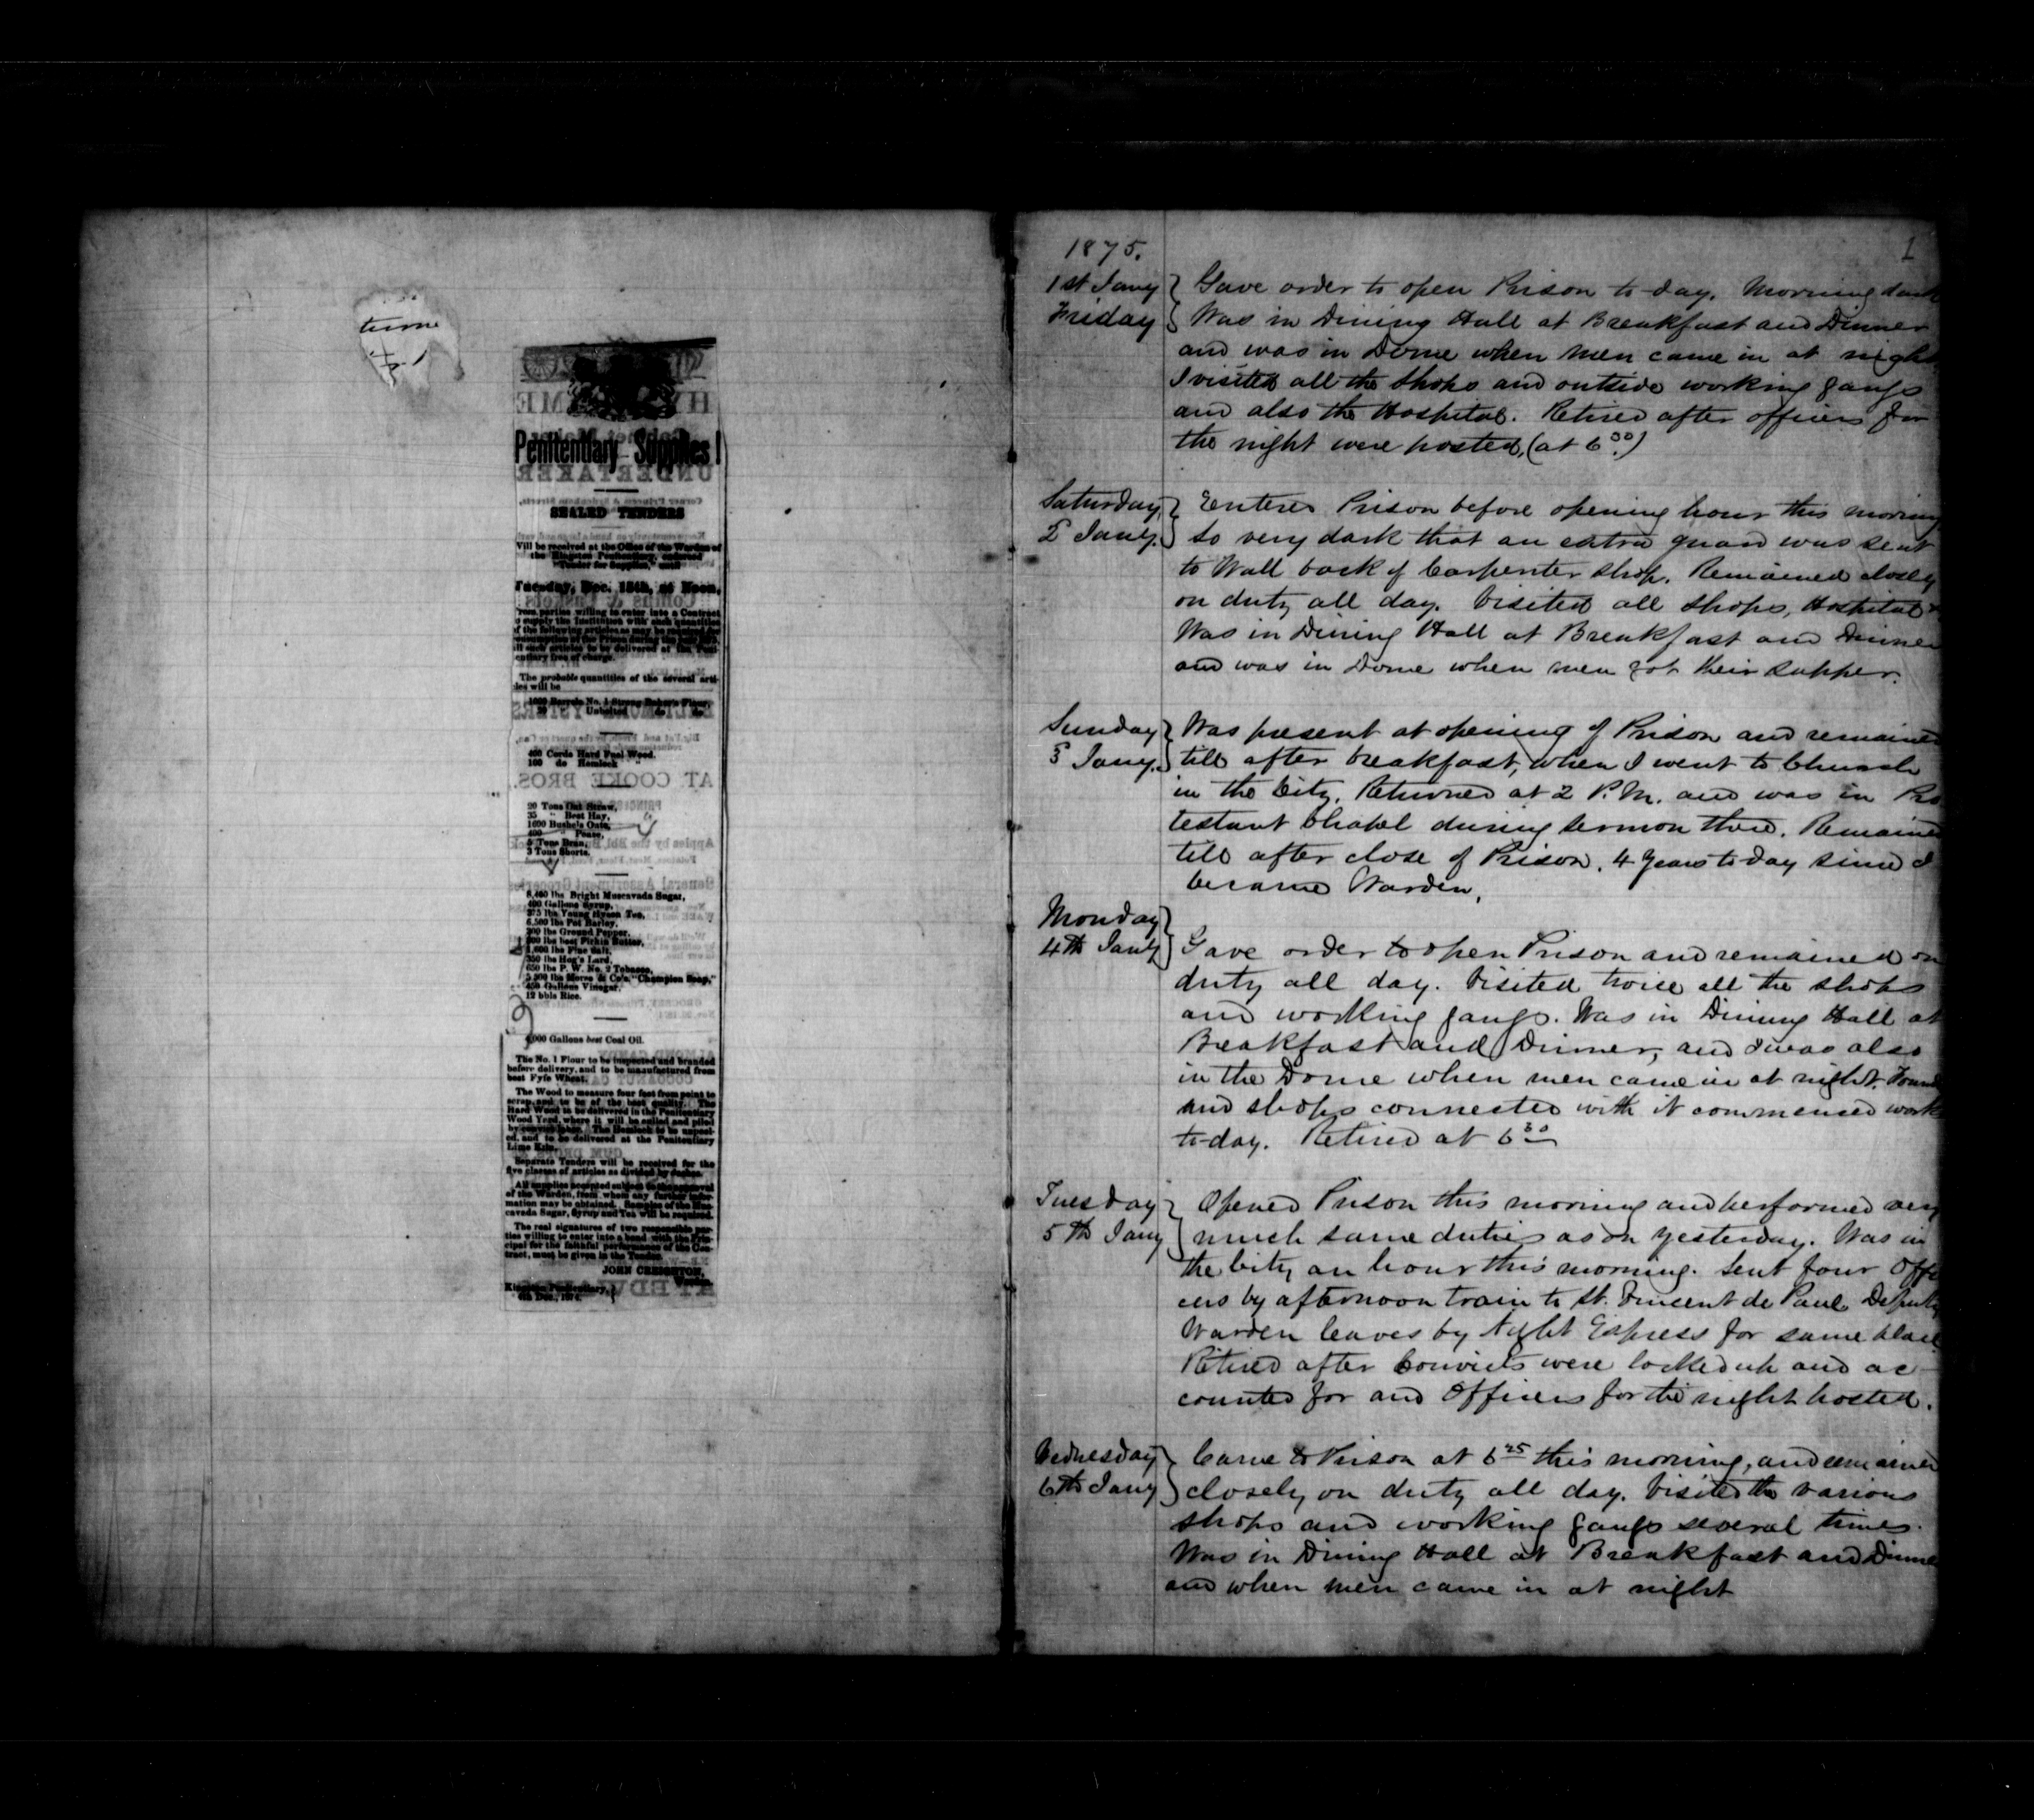 ture
Penitentiary Supplies!
SEALED TENDERS
Will be received at the Office of the Warden of
the Kingston Penitentiary, endorsed
"Tender for Supplies," until
Tuesday, Dec. 15th, at Noon,
From parties willing to enter into a Contract
to supply the Institution with such quantities
of the following articles as may be
all such articles to be delivered at the Peni-
tentiary free of charge.
The probable quantities of the several arti-
cles will be
1000 Barrels No. 1 Strong Baker's Flour,
20 Unbolted do do
400 Cords Hard Fuel Wood.
100 do Hemlock "
20 Tons Oat Straw,
35 " Best Hay,
1600 Bushels Oats,
400 " Pease,
5 Tons Bran,
3 Tons Shorts.
8,400 lbs Bright Muscavada Sugar,
400 Gallons Syrup,
375 lbs Young Hyson Tea,
6,500 lbs Pot Barley,
200 lbs Ground Pepper,
200 lbs best Firkin Butter,
1,600 lbs Fine Salt,
350 lbs Hog's Lard,
650 lbs P. W. No. 2 Tobacco,
5,500 lbs Morse & Co's "Champion Soap,"
450 Gallons Vinegar,
12 bbls Rice.
4,000 Gallons best Coal Oil.
The No. 1 Flour to be inspected and branded
before delivery, and to be manufactured from
best Fyfe Wheat.
The Wood to measure four feet from point to
scarp and to be of the best quality. The
Hard Wood to be delivered in the Penitentiary
Wood Yard, where it will be culled and piled
by convict labor. The Hemlock to be
and to be delivered at the Penitentiary
Lime Kiln.
Separate Tenders will be received for the
five classes of articles as divided by dashes.
All supplies accepted subject to the approval
of the Warden, from whom any further infor-
mation may be obtained. Samples of the Mus-
cavada Sugar, Syrup and Tea will be required.
The real signatures of two responsible par-
ties willing to enter into a bond with the Prin-
cipal for the faithful performance of the Con-
tract, must be given in the Tender.
JOHN CREIGHTON,
Warden.
Kingston Penitentiary,
4th Dec., 1874.
1
1875.
1st Jany Gave order to open Prison to-day. Morning dark
Friday Was in Dining Hall at Breakfast and Dinner
and was in Dome when men came in at night
I visited all the Shops and outside working gangs
and also the Hospital. Retired after officers for
the night were posted, (at 6 30)
Saturday Entered Prison before opening hour this morning
2 Jany. so very dark that an extra guard was sent
to Wall back of Carpenter shop. Remained closely
on duty all day. Visited all Shops, Hospital &
Was in Dining Hall at Breakfast and Dinner
and was in Dome when men got their supper.
Sunday Was present at opening of Prison and remained
3 Jany. till after breakfast, when I went to Church
in the City. Returned at 2 P.M. and was in Pro
testant Chapel during sermon there. Remained
till after close of Prison. 4 Years to day since I
became Warden.
Monday
4th Jany Gave order to open Prison and remained on
duty all day. Visited twice all the shops
and working gangs. Was in Dining Hall at
Breakfast and Dinner, and I was also
in the Dome when men came in at night.
and shops connected with it commenced work
to-day. Retired at 6 30
Tuesday Opened Prison this morning and performed very
5th Jany much same duties as on yesterday. Was in
the City an hour this morning. Sent four Offi
cers by afternoon train to St. Vincent de Paul. Deputy
Warden leaves by Night Express for same place
Retired after Convicts were locked up and ac-
counted for and Officers for the night posted.
Wednesday Came to Prison at 6 25 this morning, and remained
6th Jany closely on duty all day. Visited the various
shops and working gangs several times.
Was in Dining Hall at Breakfast and Dinner
and when men came in at night